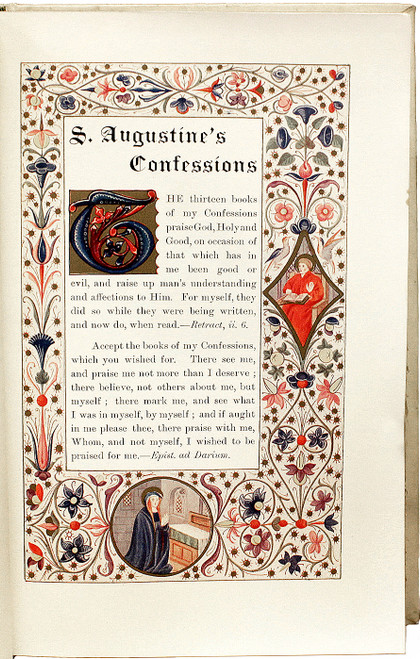 S. Augustine's
Confessions
THE thirteen books
of my Confessions
praise God, Holy and
Good, on occasion of
that which has in
me been good or
evil, and raise up man's understanding
and affections to Him. For myself, they
did so while they were being written,
and now do, when read.—Retract, ii. 6.
Accept the books of my Confessions,
which you wished for. There see me,
and praise me not more than I deserve ;
there believe, not others about me, but
myself ; there mark me, and see what
I was in myself, by myself ; and if aught
in me please thee, there praise with me,
Whom, and not myself, I wished to be
praised for me.—Epist. ad Darium.